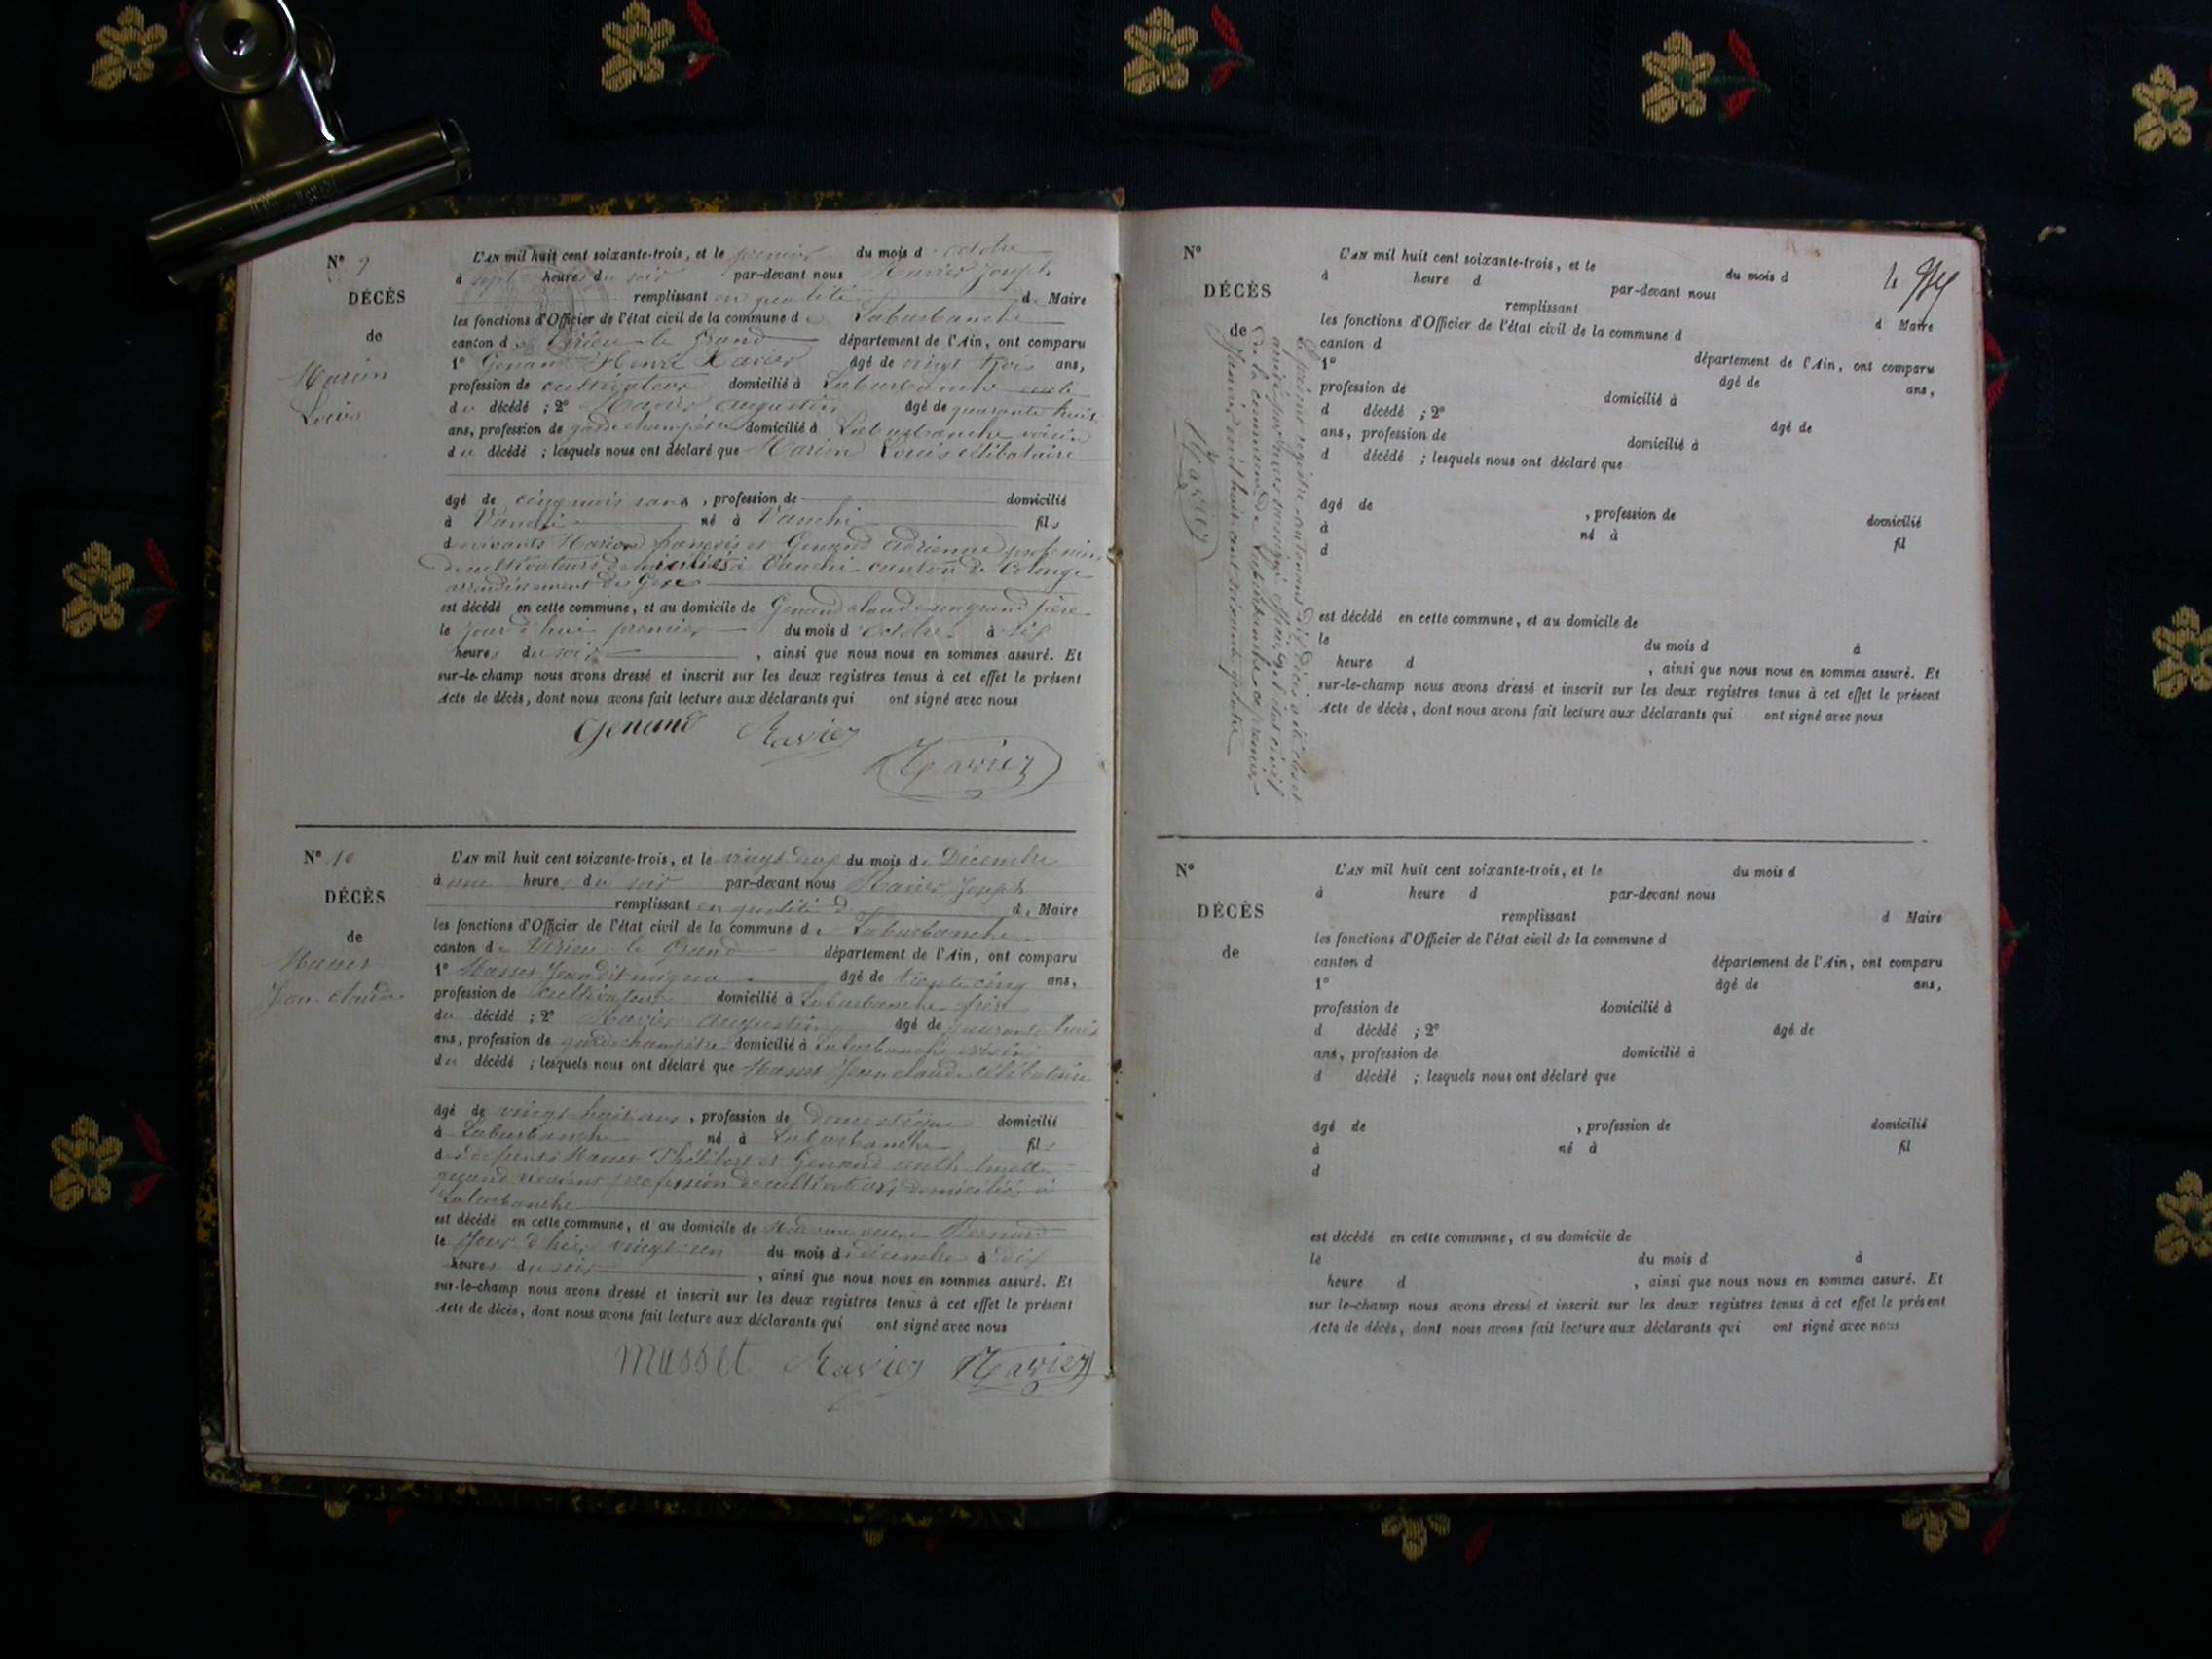 N° 9
DÉCÈS
de
Marion
Louis
L'AN mil huit cent soixante-trois, et le premier du mois d'octobre
à sept heures du soir par-devant nous Ravier Joseph
remplissant en qualité de Maire
les fonctions d'Officier de l'état civil de la commune de Laburbanche
canton de Virieu le Grand département de l'Ain, ont comparu
1° Genand Henri Xavier âgé de vingt trois ans,
profession de cultivateur domicilié à Laburbanche oncle
du décédé ; 2° Ravier Augustin âgé de quarante huit
ans, profession de garde champêtre domicilié à Laburbanche voisin
du décédé ; lesquels nous ont déclaré que Marion Louis célibataire
âgé de cinq mois ans, profession de domicilié
à Vanchi né à Vanchi fils
de vivants Marion françois et Genand Adrienne profession
de cultivateurs domiciliés à Vanchi canton de Colonge
arrondissement de Gex
est décédé en cette commune, et au domicile de Genand claude son grand père
le jour d'hui premier du mois d'octobre à six
heures du soir, ainsi que nous nous en sommes assuré. Et
sur-le-champ nous avons dressé et inscrit sur les deux registres tenus à cet effet le présent
Acte de décès, dont nous avons fait lecture aux déclarants qui ont signé avec nous
Genand Ravier
Ravier
N° 10
DÉCÈS
de
Masset
Jean claude
L'AN mil huit cent soixante-trois, et le vingt deux du mois de Décembre
à une heure du soir par-devant nous Ravier Joseph
remplissant en qualité de d. Maire
les fonctions d'Officier de l'état civil de la commune de Laburbanche
canton de Virieu le Grand département de l'Ain, ont comparu
1° Masset Jean dit âgé de trente cinq ans,
profession de cultivateur domicilié à Laburbanche frère
du décédé ; 2° Ravier Augustin âgé de quarante huit
ans, profession de garde champêtre domicilié à Laburbanche voisin
du décédé ; lesquels nous ont déclaré que Masset Jean claude célibataire
âgé de vingt huit ans, profession de domestique domicilié
à Laburbanche né à Laburbanche fils
de défunts Masset Philibert et Genand Anthelmette
quand vivaient profession de cultivateurs domiciliés à
Laburbanche
est décédé en cette commune, et au domicile de Madame veuve
le jour d'hier vingt un du mois de décembre à dix
heures du soir, ainsi que nous nous en sommes assuré. Et
sur-le-champ nous avons dressé et inscrit sur les deux registres tenus à cet effet le présent
Acte de décès, dont nous avons fait lecture aux déclarants qui ont signé avec nous
Masset Ravier Ravier
N°
DÉCÈS
de
Le présent registre contenant dix décès a été clos et
arrêté par nous soussigné officier de l'état civil
de la commune de Laburbanche ce premier
Janvier mil huit cent soixante quatre
Ravier
L'AN mil huit cent soixante-trois, et le du mois d
à heure d par-devant nous
remplissant d Maire
les fonctions d'Officier de l'état civil de la commune d
canton d département de l'Ain, ont comparu
1° âgé de ans,
profession de domicilié à
d décédé ; 2° âgé de
ans, profession de domicilié à
d décédé ; lesquels nous ont déclaré que
âgé de , profession de domicilié
à né à fil
d
est décédé en cette commune, et au domicile de
le du mois d à
heure d , ainsi que nous nous en sommes assuré. Et
sur-le-champ nous avons dressé et inscrit sur les deux registres tenus à cet effet le présent
Acte de décès, dont nous avons fait lecture aux déclarants qui ont signé avec nous
N°
DÉCÈS
de
L'AN mil huit cent soixante-trois, et le du mois d
à heure d par-devant nous
remplissant d Maire
les fonctions d'Officier de l'état civil de la commune d
canton d département de l'Ain, ont comparu
1° âgé de ans,
profession de domicilié à
d décédé ; 2° âgé de
ans, profession de domicilié à
d décédé ; lesquels nous ont déclaré que
âgé de , profession de domicilié
à né à fil
d
est décédé en cette commune, et au domicile de
le du mois d à
heure d , ainsi que nous nous en sommes assuré. Et
sur le-champ nous avons dressé et inscrit sur les deux registres tenus à cet effet le présent
Acte de décès, dont nous avons fait lecture aux déclarants qui ont signé avec nous